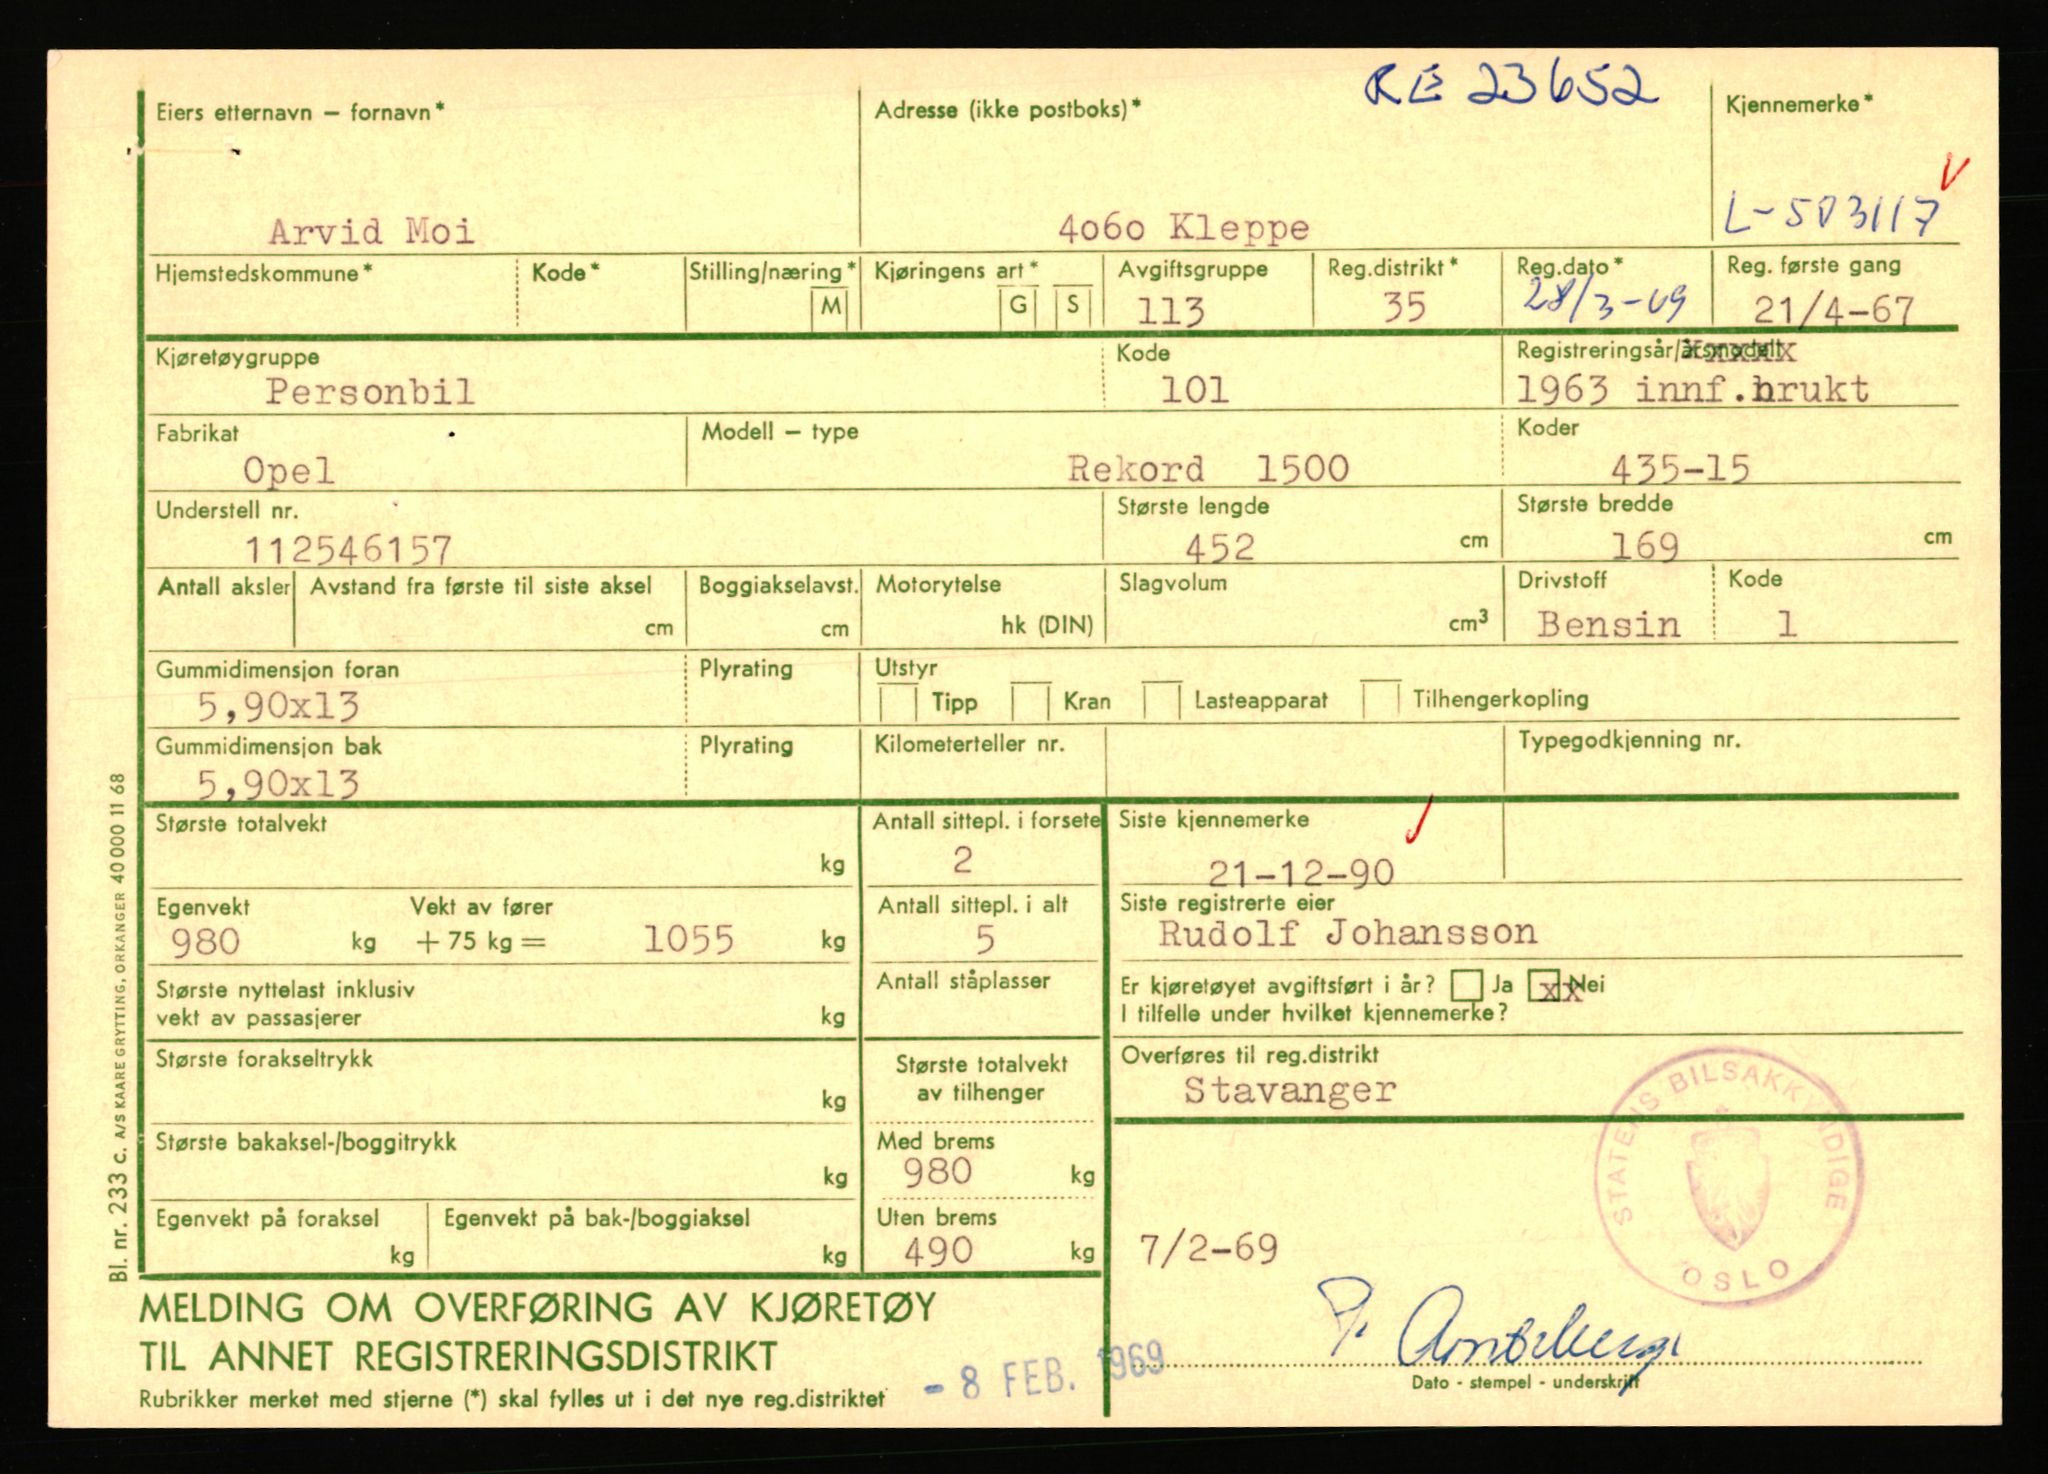 RE 23652
Eiers etternavn – fornavn*
Adresse (ikke postboks)*
Kjennemerke*
Arvid Moi
4060 Kleppe
L-503117
Hjemstedskommune*
Kode*
Stilling/næring*
M
Kjøringens art*
G
S
Avgiftsgruppe
113
Reg.distrikt*
35
Reg.dato*
28/3-69
Reg. første gang
21/4-67
Kjøretøygruppe
Personbil
Kode
101
Registreringsår/årsmodell
1963 innf.brukt
Fabrikat
Opel
Modell – type
Rekord 1500
Koder
435-15
Understell nr.
112546157
Største lengde
452 cm
Største bredde
169 cm
Antall aksler
Avstand fra første til siste aksel
cm
Boggiakselavst.
cm
Motorytelse
hk (DIN)
Slagvolum
cm³
Drivstoff
Bensin
Kode
1
Gummidimensjon foran
5,90x13
Plyrating
Utstyr
Tipp
Kran
Lasteapparat
Tilhengerkopling
Gummidimensjon bak
5,90x13
Plyrating
Kilometerteller nr.
Typegodkjenning nr.
Største totalvekt
kg
Antall sittepl. i forsete
2
Siste kjennemerke
21-12-90
Egenvekt
980 kg
Vekt av fører
+ 75 kg = 1055 kg
Antall sittepl. i alt
5
Siste registrerte eier
Rudolf Johansson
Største nyttelast inklusiv
vekt av passasjerer
kg
Antall ståplasser
Er kjøretøyet avgiftsført i år? Ja xx Nei
I tilfelle under hvilket kjennemerke?
Største forakseltrykk
kg
Største totalvekt
av tilhenger
Overføres til reg.distrikt
Stavanger
Største bakaksel-/boggitrykk
kg
Med brems
980 kg
Egenvekt på foraksel
kg
Egenvekt på bak-/boggiaksel
kg
Uten brems
490 kg
7/2-69
STATENS BILSAKKYNDIGE
OSLO
MELDING OM OVERFØRING AV KJØRETØY
TIL ANNET REGISTRERINGSDISTRIKT
Rubrikker merket med stjerne (*) skal fylles ut i det nye reg.distriktet
- 8 FEB. 1969
Dato - stempel - underskrift
Bl. nr. 233 c. A/S KAARE GRYTTING, ORKANGER 40 000 11 68